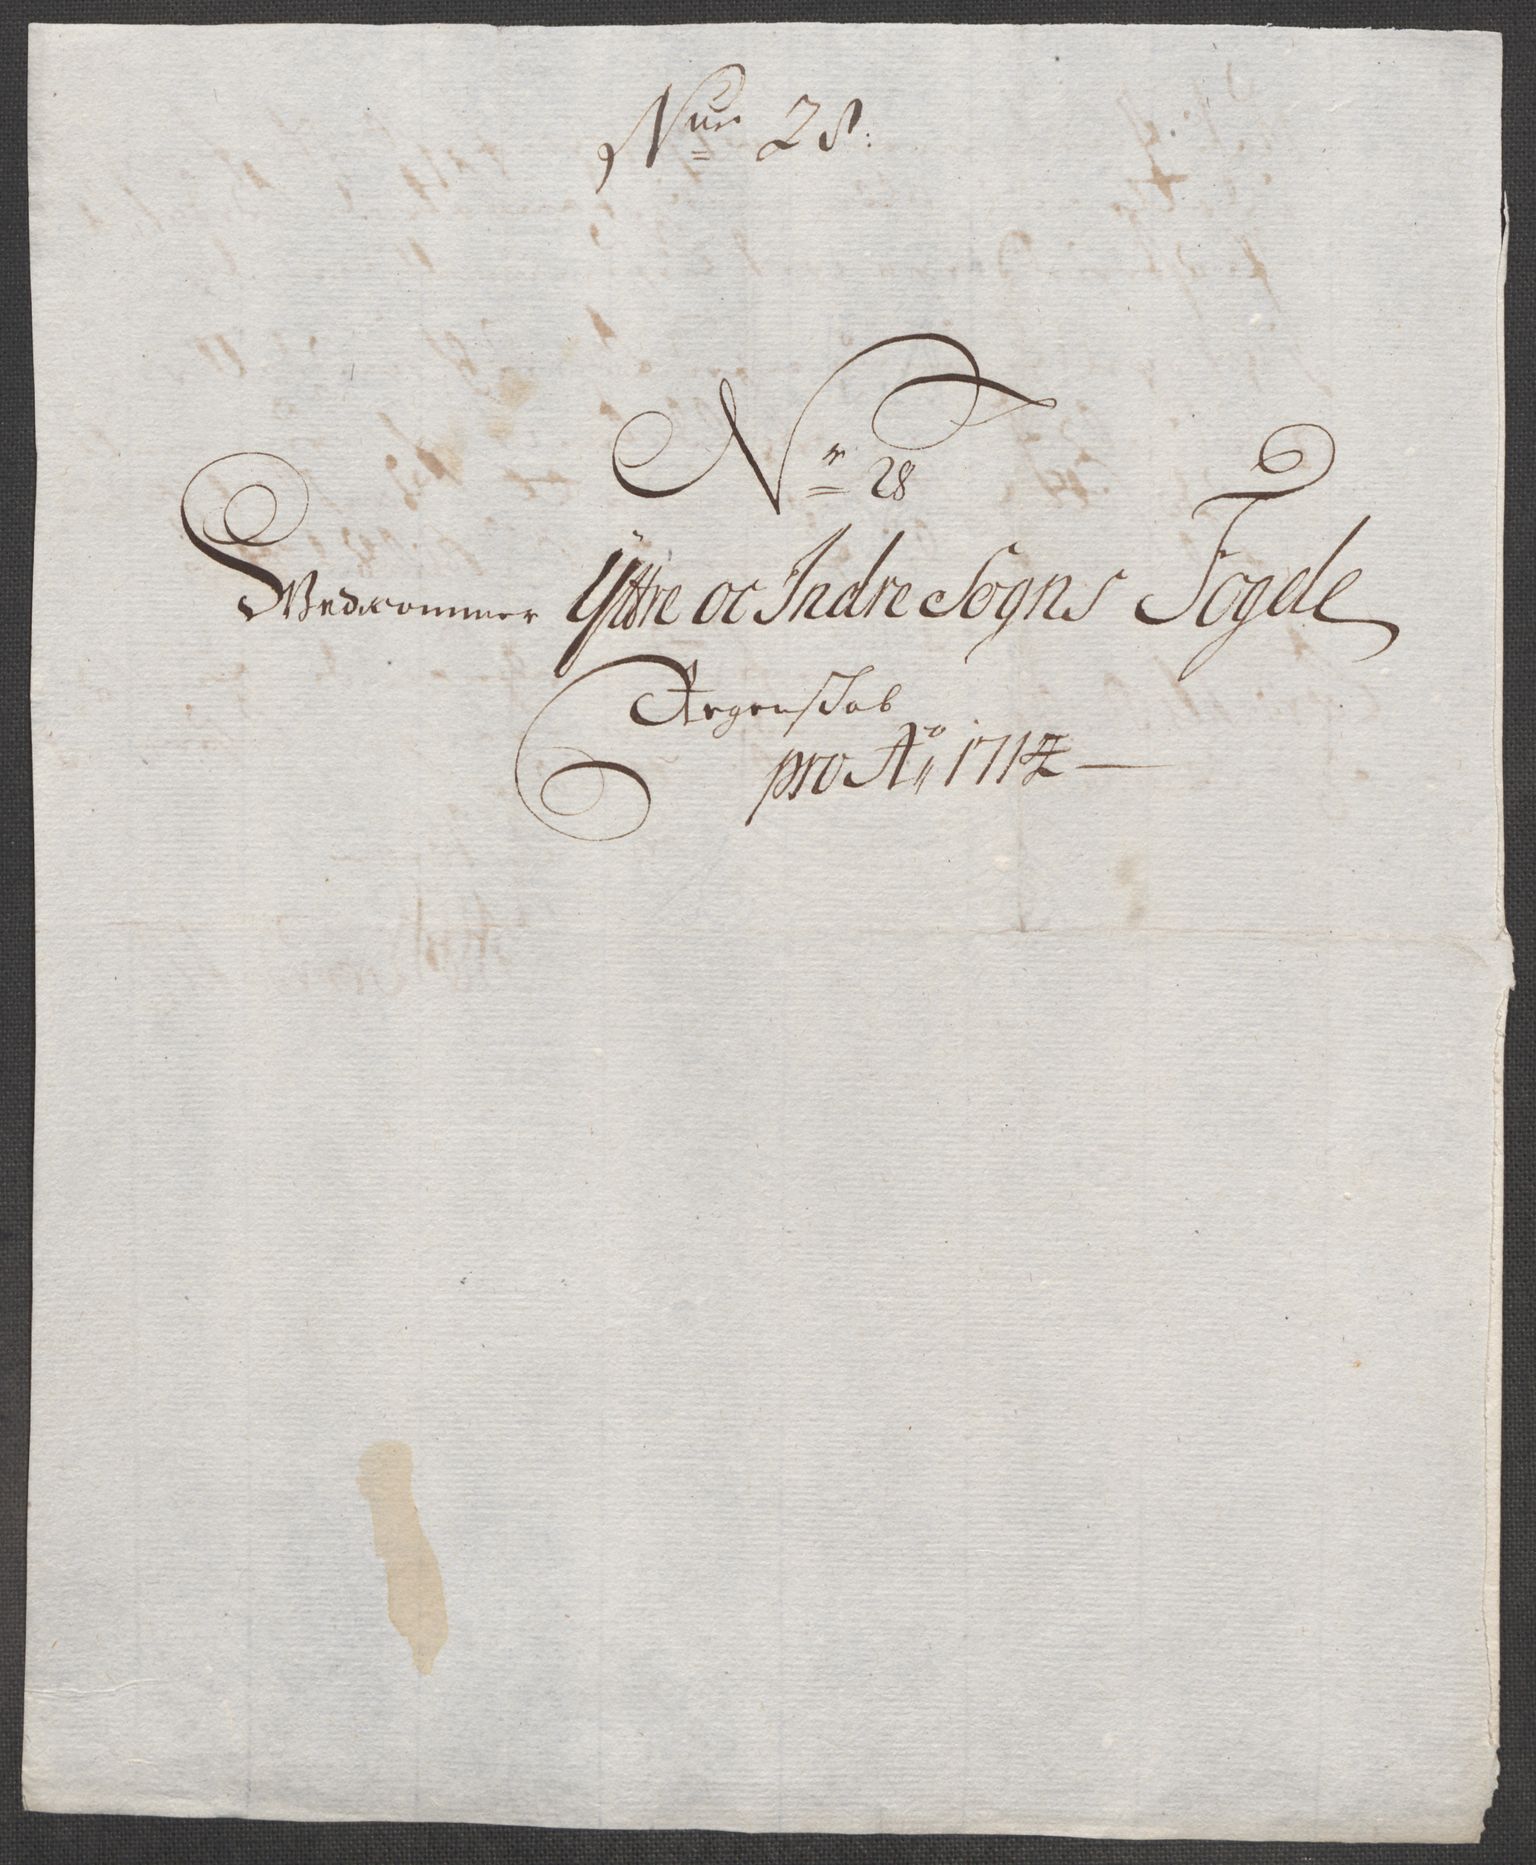 Num 28:
Nr 28
Vedkommer Yttre oc Indre Sogns Fogde
Regenskab
pro Ao 1712